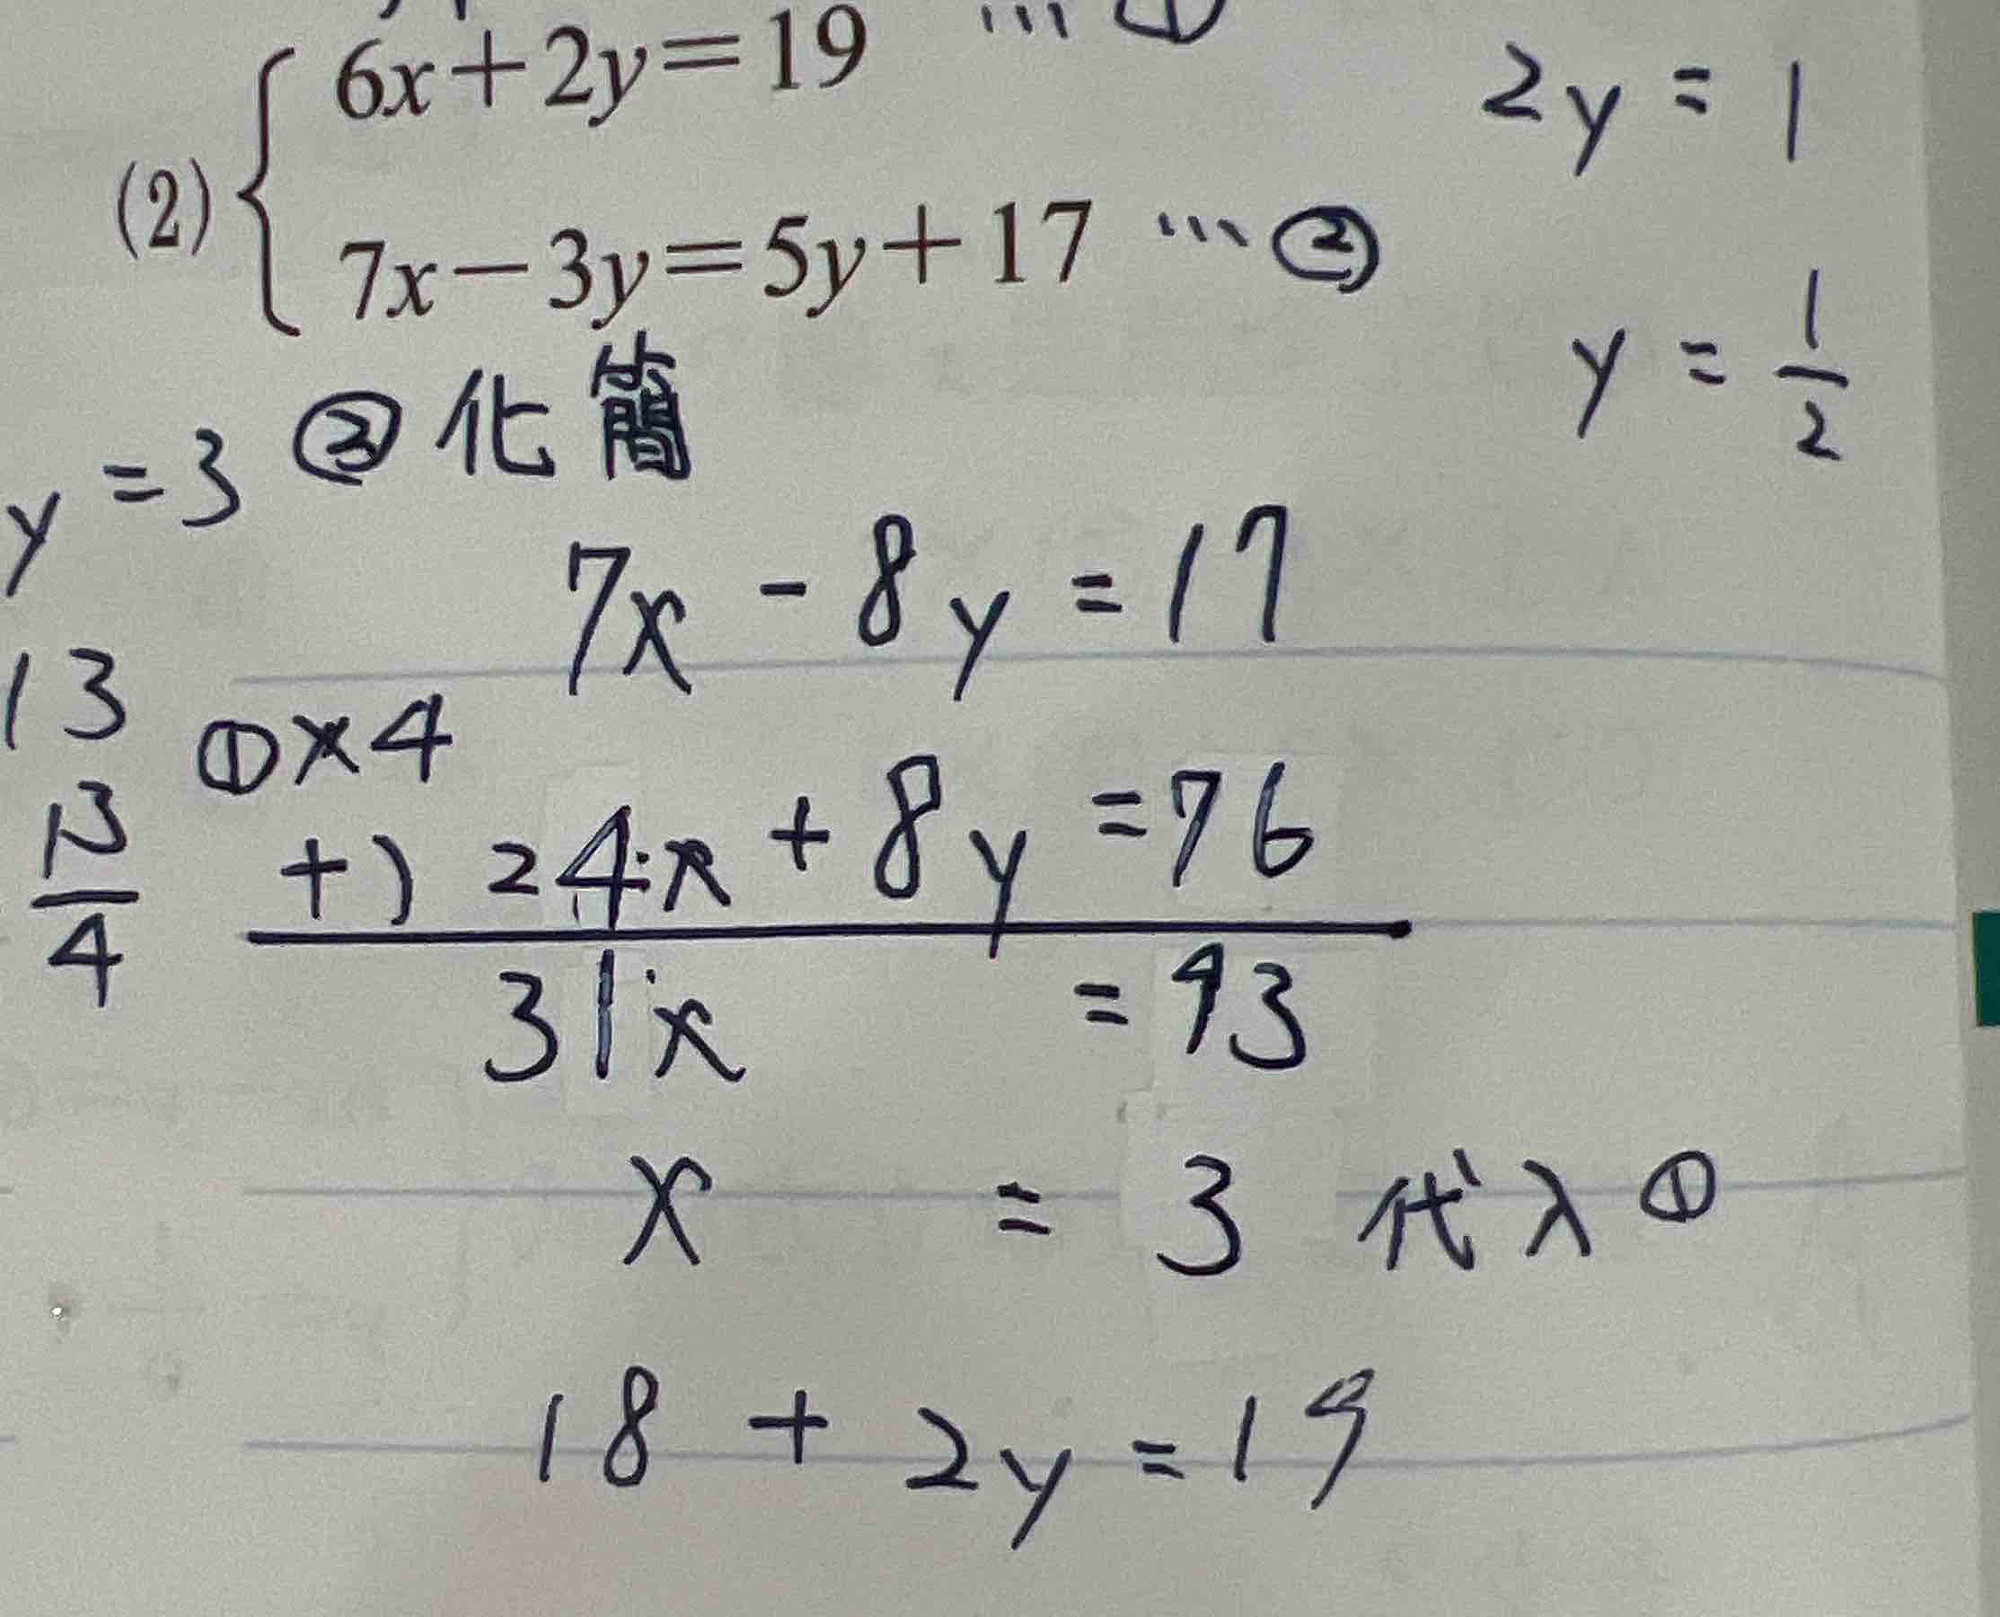 (2) { 6x+2y=19 … ①
7x-3y=5y+17 … ②
② 化簡
7x - 8y = 17
①×4
+) 24x + 8y = 76
31x = 93
x = 3 代入①
18 + 2y = 19
2y = 1
y = 1/2
y = 3
13
13/4